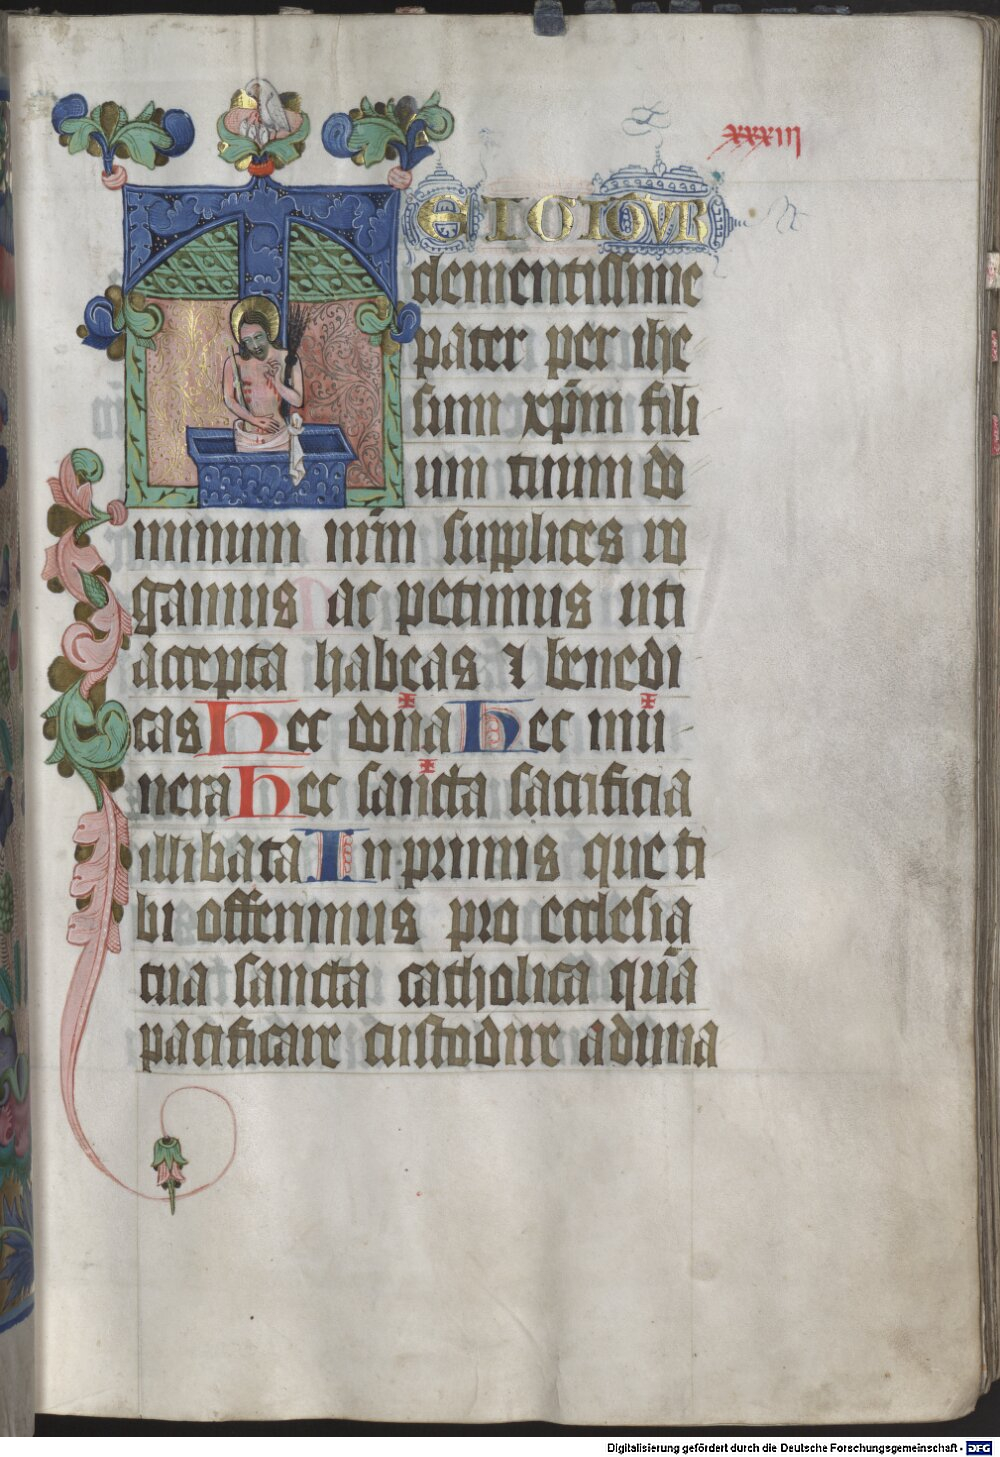 xxxiii
TE IGITUR
clementissime
pater per ihe
sum xp̄m fili
um tuum do
minum nr̄m supplices ro
gamus ac petimus uti
accepta habeas ⁊ benedi
cas Hec do✠na Hec mu✠
nera Hec san✠cta sacrificia
illibata In primis que ti
bi offerimus pro ecclesia
tua sancta catholica quā
pacificare custodire aduna
Digitalisierung gefördert durch die Deutsche Forschungsgemeinschaft - DFG